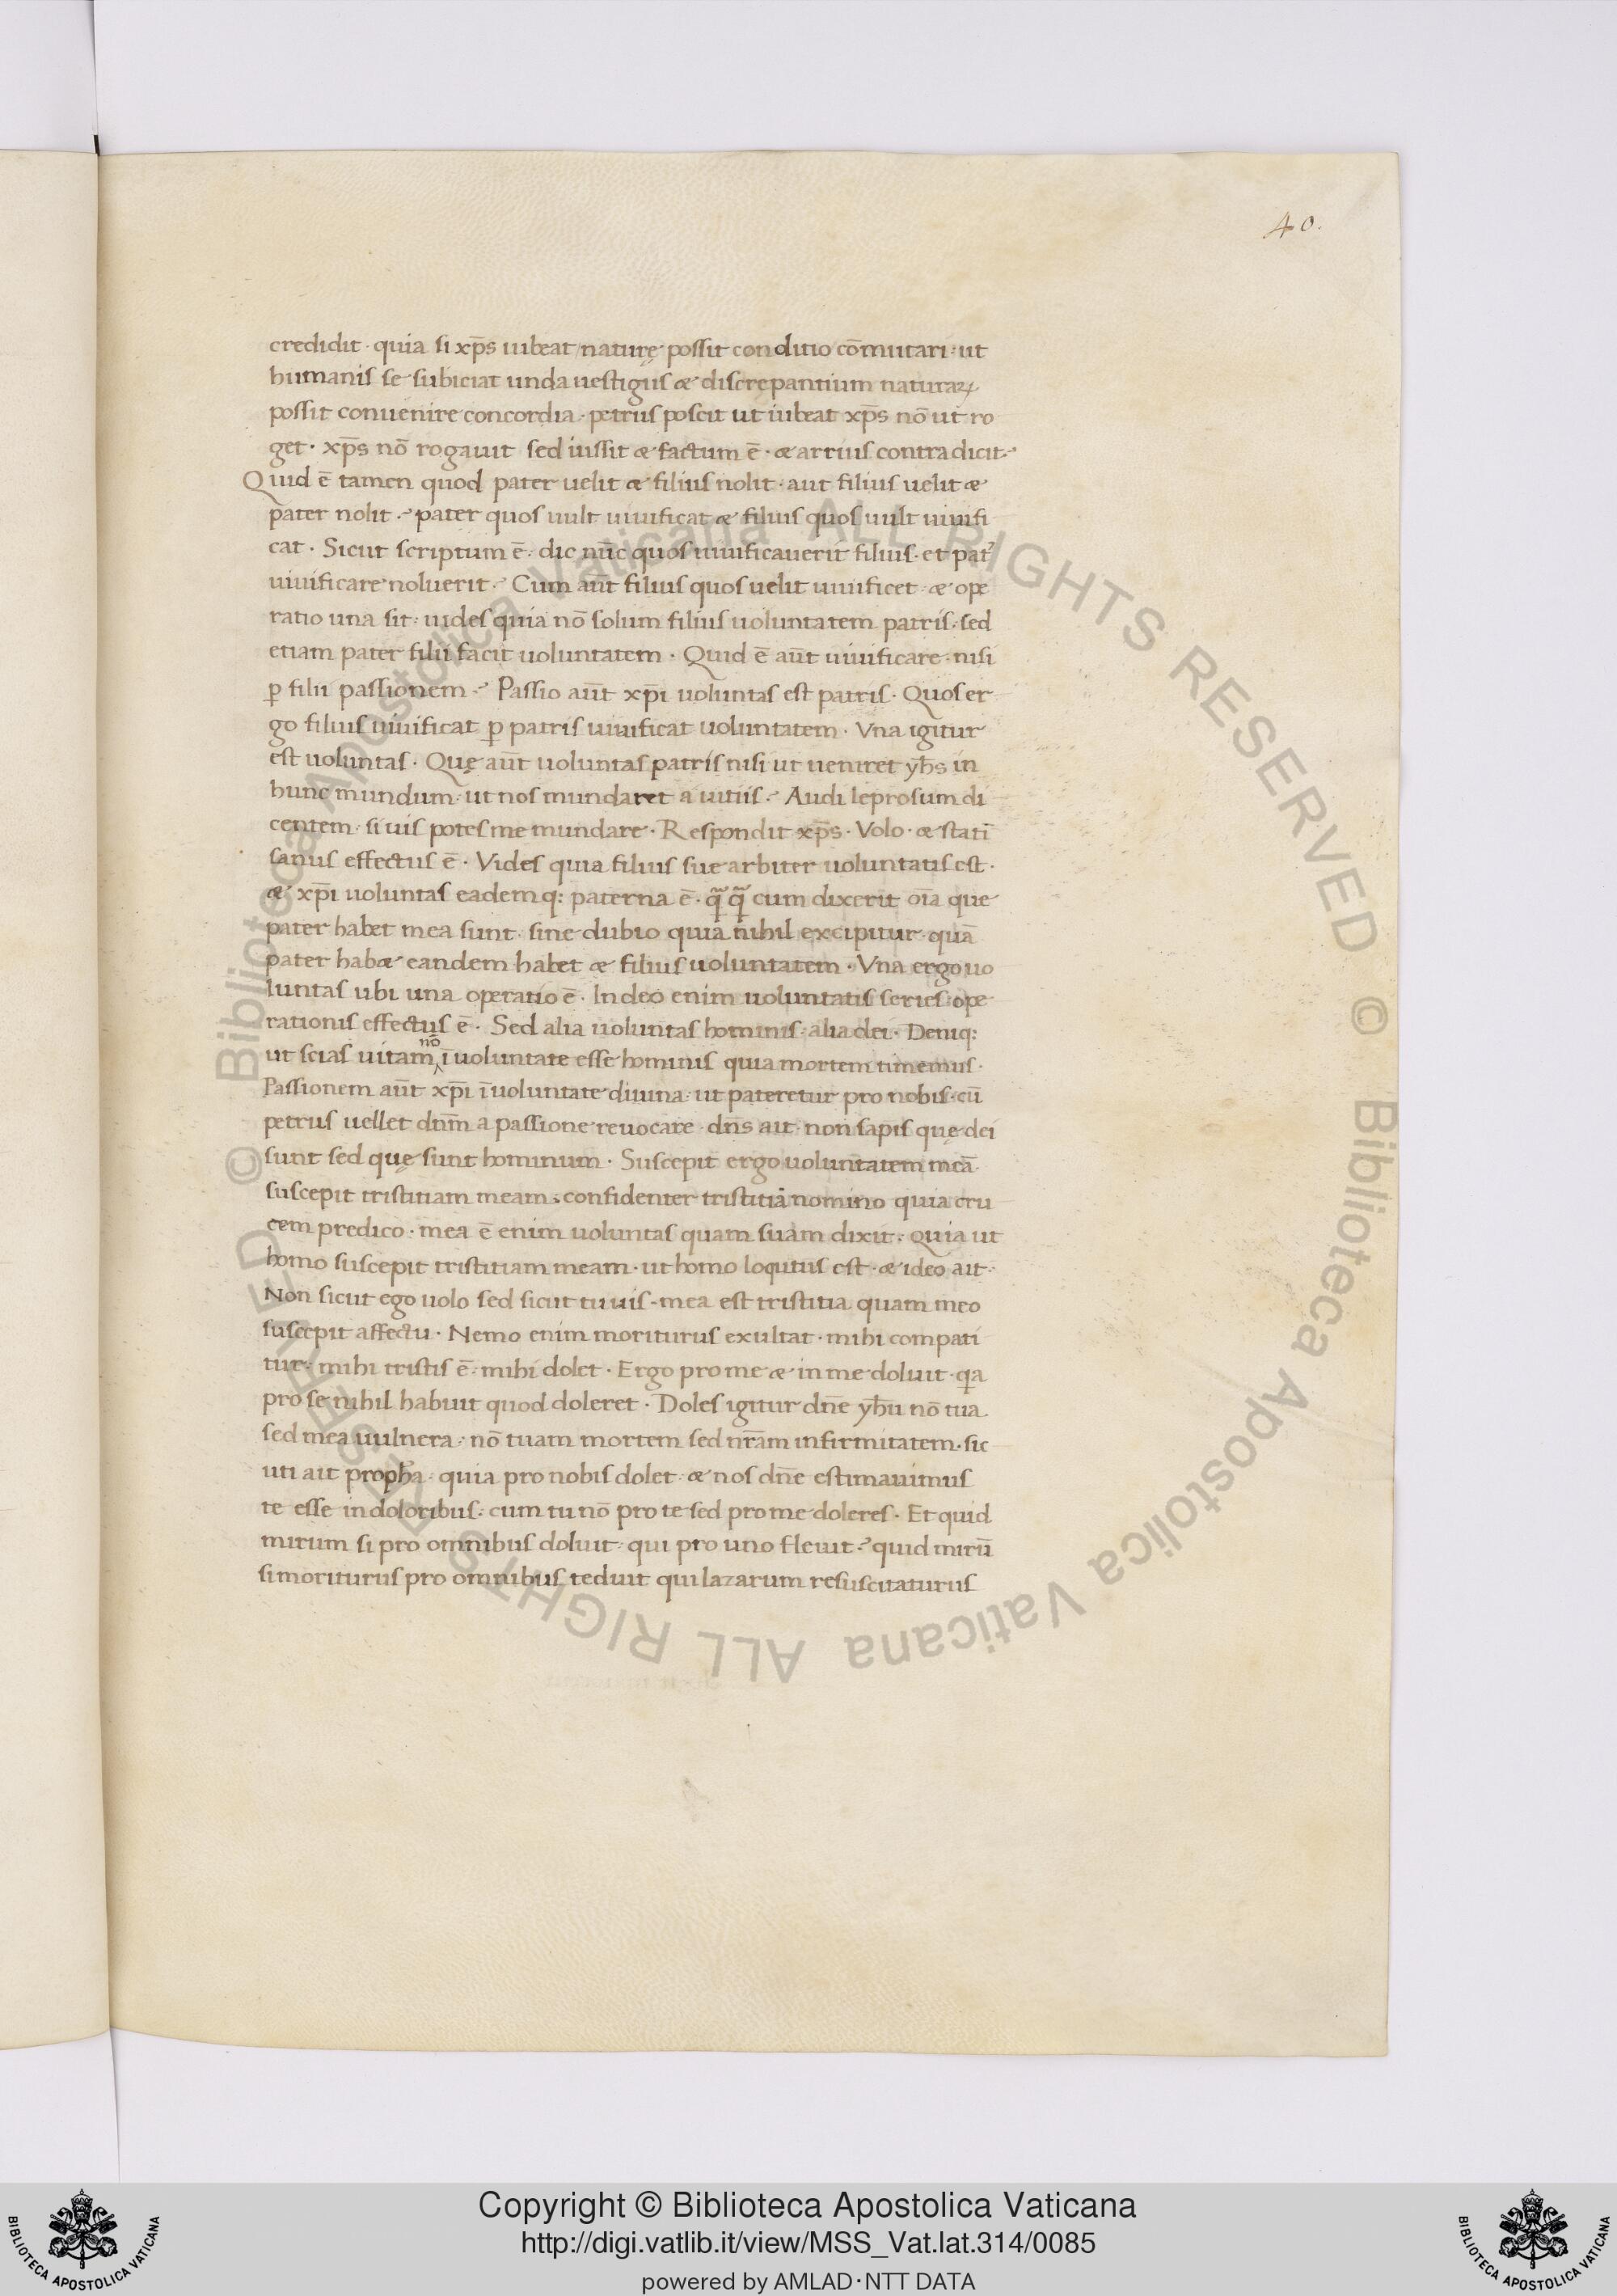 40.
credidit · quia si xp̄s iubeat naturę possit conditio cōmutari : ut
humanis se subiciat unda uestigiis & discrepantium naturaꝝ
possit conuenire concordia · petrus poscit ut iubeat xp̄s nō ut ro
get · xp̄s nō rogauit sed iussit & factum ē · & arrius contradicit ·
Quid ē tamen quod pater uelit & filius nolit · aut filius uelit &
pater nolit ? pater quos uult uiuificat & filius quos uult uiuifi
cat · Sicut scriptum ē · dic nūc quos uiuificauerit filius · et pat᾽
uiuificare noluerit · Cum aūt filius quos uelit uiuificet · & ope
ratio una sit : uides quia nō solum filius uoluntatem patris · sed
etiam pater filii facit uoluntatem · Quid ē aūt uiuificare · nisi
ꝑ filii passionem ? Passio aūt xp̄i uoluntas est patris · Quos er
go filius uiuificat ꝑ patris uiuificat uoluntatem · Vna igitur
est uoluntas · Quę aūt uoluntas patris nisi ut ueniret yh̄s in
hunc mundum · ut nos mundaret a uitiis ? Audi leprosum di
centem · si uis potes me mundare · Respondit xp̄s · Volo · & statī
sanus effectus ē · Vides quia filius sue arbiter uoluntatis est ·
& xp̄i uoluntas eadem q: paterna ē · q̄ q̄ cum dixerit oīa que
pater habet mea sunt · sine dubio quia nihil excipitur · quā
pater hab& eandem habet & filius uoluntatem · Vna ergo uo
luntas ubi una operatio ē · In deo enim uoluntatis series ope
rationis effectus ē · Sed alia uoluntas hominis · alia dei · Deniq:
nō
ut scias uitam ī uoluntate esse hominis quia mortem timemus ·
Passionem aūt xp̄i ī uoluntate diuina · ut pateretur pro nobis · cū
petrus uellet dn̄m a passione reuocare · dn̄s ait · non sapis quę dei
sunt sed quę sunt hominum · Suscepit ergo uoluntatem meā ·
suscepit tristitiam meam · confidenter tristitiā nomino quia cru
cem predico · mea ē enim uoluntas quam suam dixit · quia ut
homo suscepit tristitiam meam · ut homo loqutus est · & ideo ait ·
Non sicut ego uolo sed sicut tu uis · mea est tristitia quam meo
suscepit affectu · Nemo enim moriturus exultat · mihi compati
tur · mihi tristis ē · mihi dolet · Ergo pro me & in me doluit · qa
pro se nihil habuit quod doleret · Doles igitur dn̄e yh̄u nō tua
sed mea uulnera · nō tuam mortem sed nr̄am infirmitatem · sic
uti ait proph̄a · quia pro nobis dolet · & nos dn̄e estimauimus
te esse in doloribus · cum tu nō pro te sed pro me doleres · Et quid
mirum si pro omnibus doluit · qui pro uno fleuit ? quid mirū
si moriturus pro omnibus teduit qui lazarum resuscitaturus
© Biblioteca Apostolica Vaticana ALL RIGHTS RESERVED
© Biblioteca Apostolica Vaticana ALL RIGHTS RESERVED
BIBLIOTECA APOSTOLICA VATICANA
Copyright © Biblioteca Apostolica Vaticana
http://digi.vatlib.it/view/MSS_Vat.lat.314/0085
powered by AMLAD·NTT DATA
BIBLIOTECA APOSTOLICA VATICANA